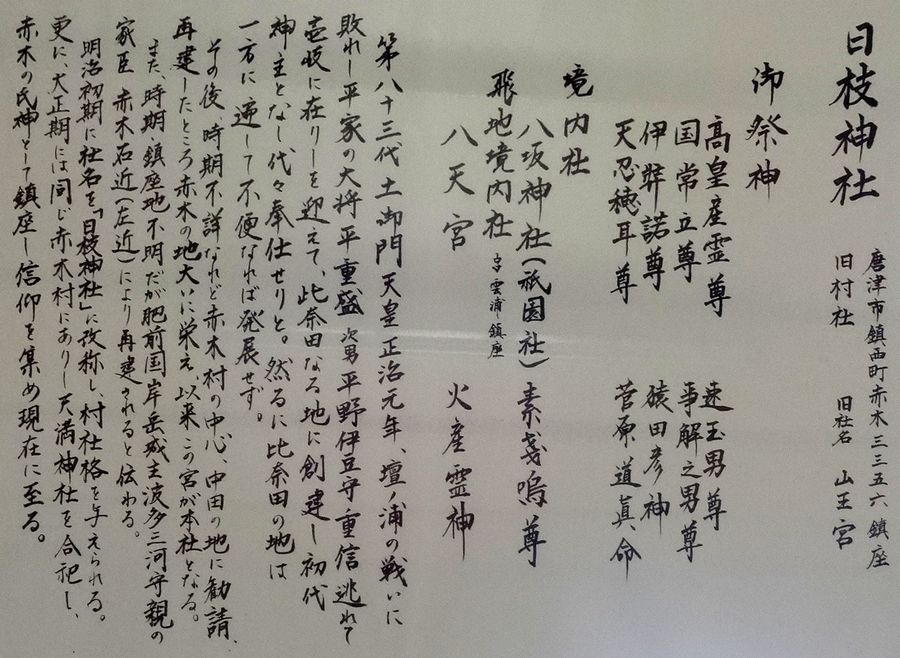 日枝神社
唐津市鎮西町赤木三三五六鎮座
旧村社 旧社名 山王宮
御祭神
高皇産霊尊 速玉男尊
国常立尊 事解之男尊
伊弉諾尊 猿田彦神
天忍穂耳尊 菅原道眞命
境内社
八坂神社(祇園社) 素戔嗚尊
飛地境内社 字雲浦鎮座
八天宮 火産霊神
第八十三代土御門天皇正治元年、壇ノ浦の戦いに
敗れし平家の大将平重盛次男平野伊豆守重信逃れて
壱岐に在りしを迎えて、此奈田なる地に創建し初代
神主となし代々奉仕せりと。然るに比奈田の地は
一方に逼して不便なれば発展せず。
その後、時期不詳なれど赤木村の中心、中田の地に勧請、
再建したところ赤木の地大いに栄え、以来この宮が本社となる。
また、時期、鎮座地不明だが肥前国岸岳城主波多三河守親の
家臣 赤木右近(左近)により再建されると伝わる。
明治初期に社名を「日枝神社」に改称し、村社格を与えられる。
更に、大正期には同じ赤木村にありし天満神社を合祀し、
赤木の氏神として鎮座し信仰を集め現在に至る。